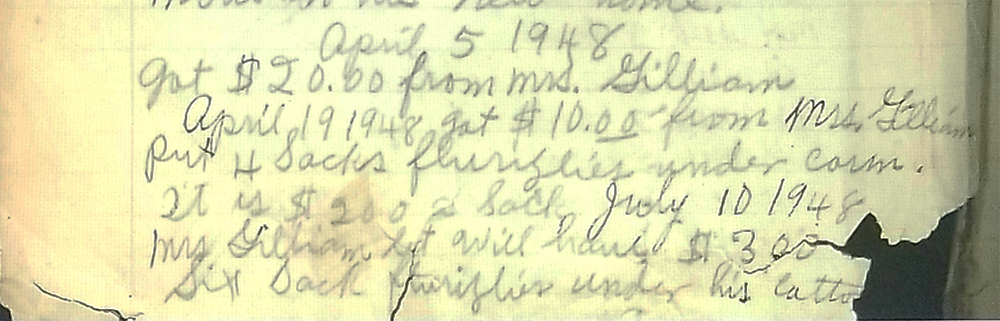 new home.
April 5 1948
Got $20.00 from mrs. Gilliam
April 19 1948 got $10.00 from Mrs. Gilliam
Put 4 Sacks fhurizlies under corn.
It is $200 a Sack July 10 1948
Mrs Gilliam let Will have $300
Six Sack fhurizlies under his Cotto